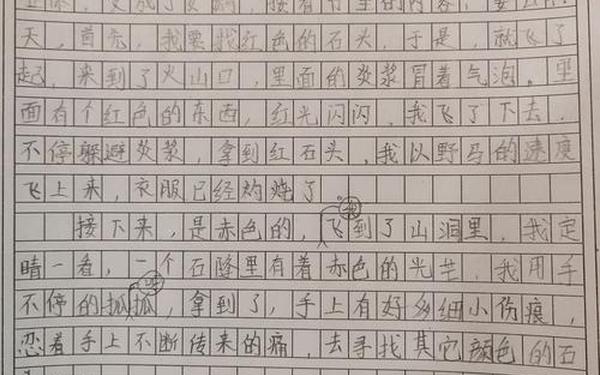 变成了女娲，接着书里的内容，要
天，首先，我要找红色的石头，于是，就飞了
起，来到了火山口，里面的炎浆冒着气泡。里
面有个红色的东西，红光闪闪，我飞了下去，
不停躲避炎浆，拿到红石头，我以野马的速度
飞上来，衣服已经灼烧了
接下来，是赤色的，飞到了山洞里，我定
睛一看，一个石隆里有着赤色的光芒，我用手
不停的抓抓，拿到了，手上有好多细小伤痕，
忍着手上不断传来的痛，去寻找其它颜色的石